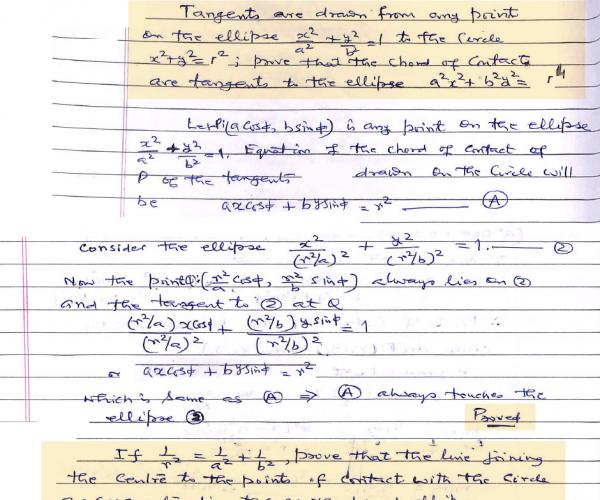 Tangents are drawn from any point
on the ellipse x²/a² + y²/b² = 1 to the Circle
x²+y²=r²; prove that the chord of Contacts
are tangents to the ellipse a²x²+b²y²= r⁴
Let P:(a cosφ, b sinφ) is any point on the ellipse
x²/a² + y²/b² = 1. Equation of the chord of contact of
P of the tangents drawn on the Circle will
be axcosφ + bysinφ = r² Ⓐ
Consider the ellipse x²/(r²/a)² + y²/(r²/b)² = 1. ②
Now the point Q:(r²/a cosφ, r²/b sinφ) always lies on ②
and the tangent to ② at Q
(r²/a) xcosφ/(r²/a)² + (r²/b) ysinφ/(r²/b)² = 1
or axcosφ + bysinφ = r²
which is same as Ⓐ ⇒ Ⓐ always touches the
ellipse ②
Proved
If 1/r² = 1/a² + 1/b², prove that the line joining
the Centre to the points of contact with the Circle